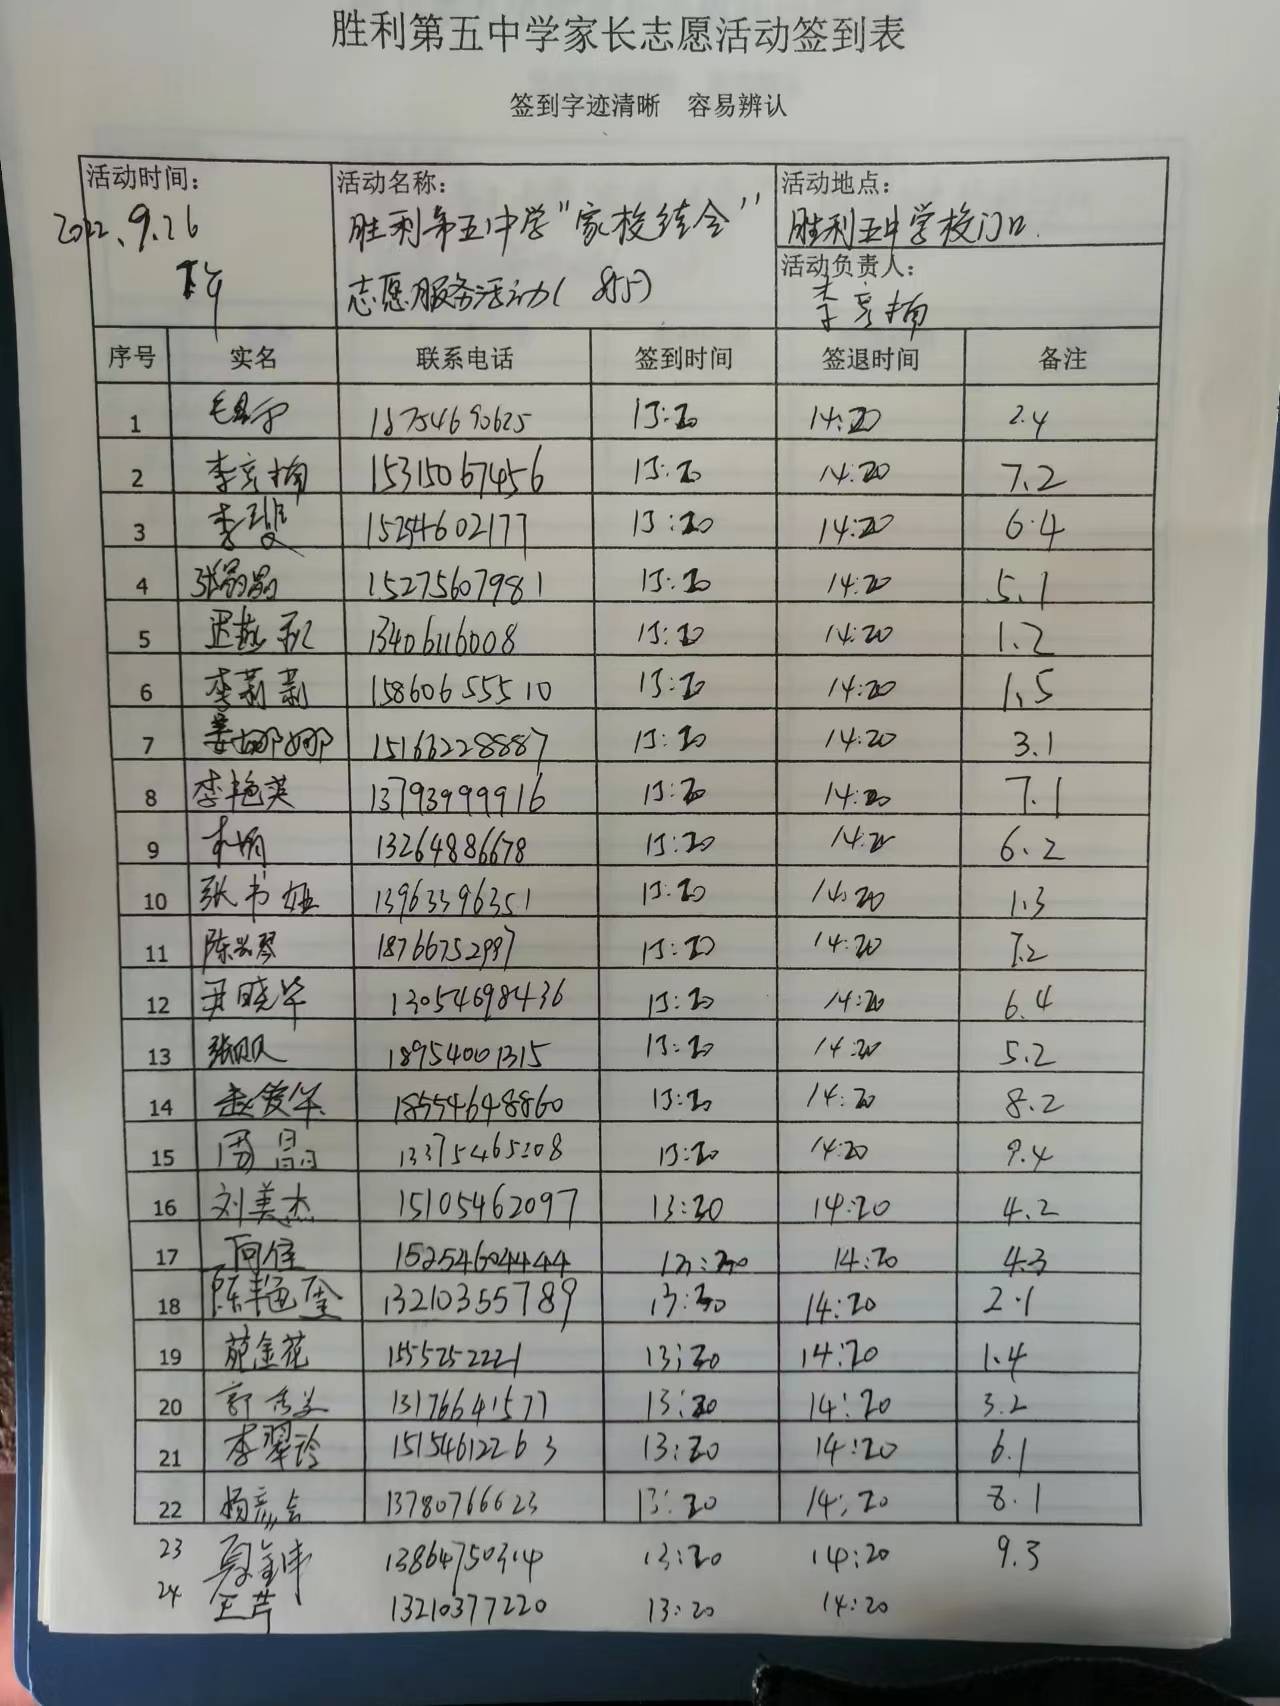 胜利第五中学家长志愿活动签到表
签到字迹清晰 容易辨认
活动时间: 活动名称: 活动地点:
2022.9.26 胜利第五中学"家校结合" 胜利五中学校门口.
下午 志愿服务活动( 活动负责人:
李彦楠
序号 实名 联系电话 签到时间 签退时间 备注
1 18754690625 13:20 14:20 2.4
2 李彦楠 15315067456 13:20 14:20 7.2
3 李 15254602177 13:20 14:20 6.4
4 张磊磊 15275607981 13:20 14:20 5.1
5 13406116008 13:20 14:20 1.2
6 李莉莉 15860655510 13:20 14:20 1.5
7 姜娜娜 15166228887 13:20 14:20 3.1
8 李艳英 13793999916 13:20 14:20 7.1
9 13264886678 13:20 14:20 6.2
10 张书 13963396351 13:20 14:20 1.3
11 陈兴琴 18766752997 13:20 14:20
12 尹晓华 13054698436 13:20 14:20 6.4
13 张贝贝 18954001315 13:20 14:20 5.2
14 赵爱华 18554648860 13:20 14:20 8.2
15 周晶 13375465208 13:20 14:20 9.4
16 刘美杰 15105462097 13:20 14:20 4.2
17 15254604444 13:20 14:20 4.3
18 陈艳 13210355789 13:20 14:20 2.1
19 金花 1555252221 13:20 14:20 1.4
20 郭秀 13176641577 13:20 14:20 3.2
21 李翠玲 15154612263 13:20 14:20 6.1
22 杨彦会 13780766623 13:20 14:20 8.1
23 夏金 13864750314 13:20 14:20 9.3
24 王芹 13210377220 13:20 14:20